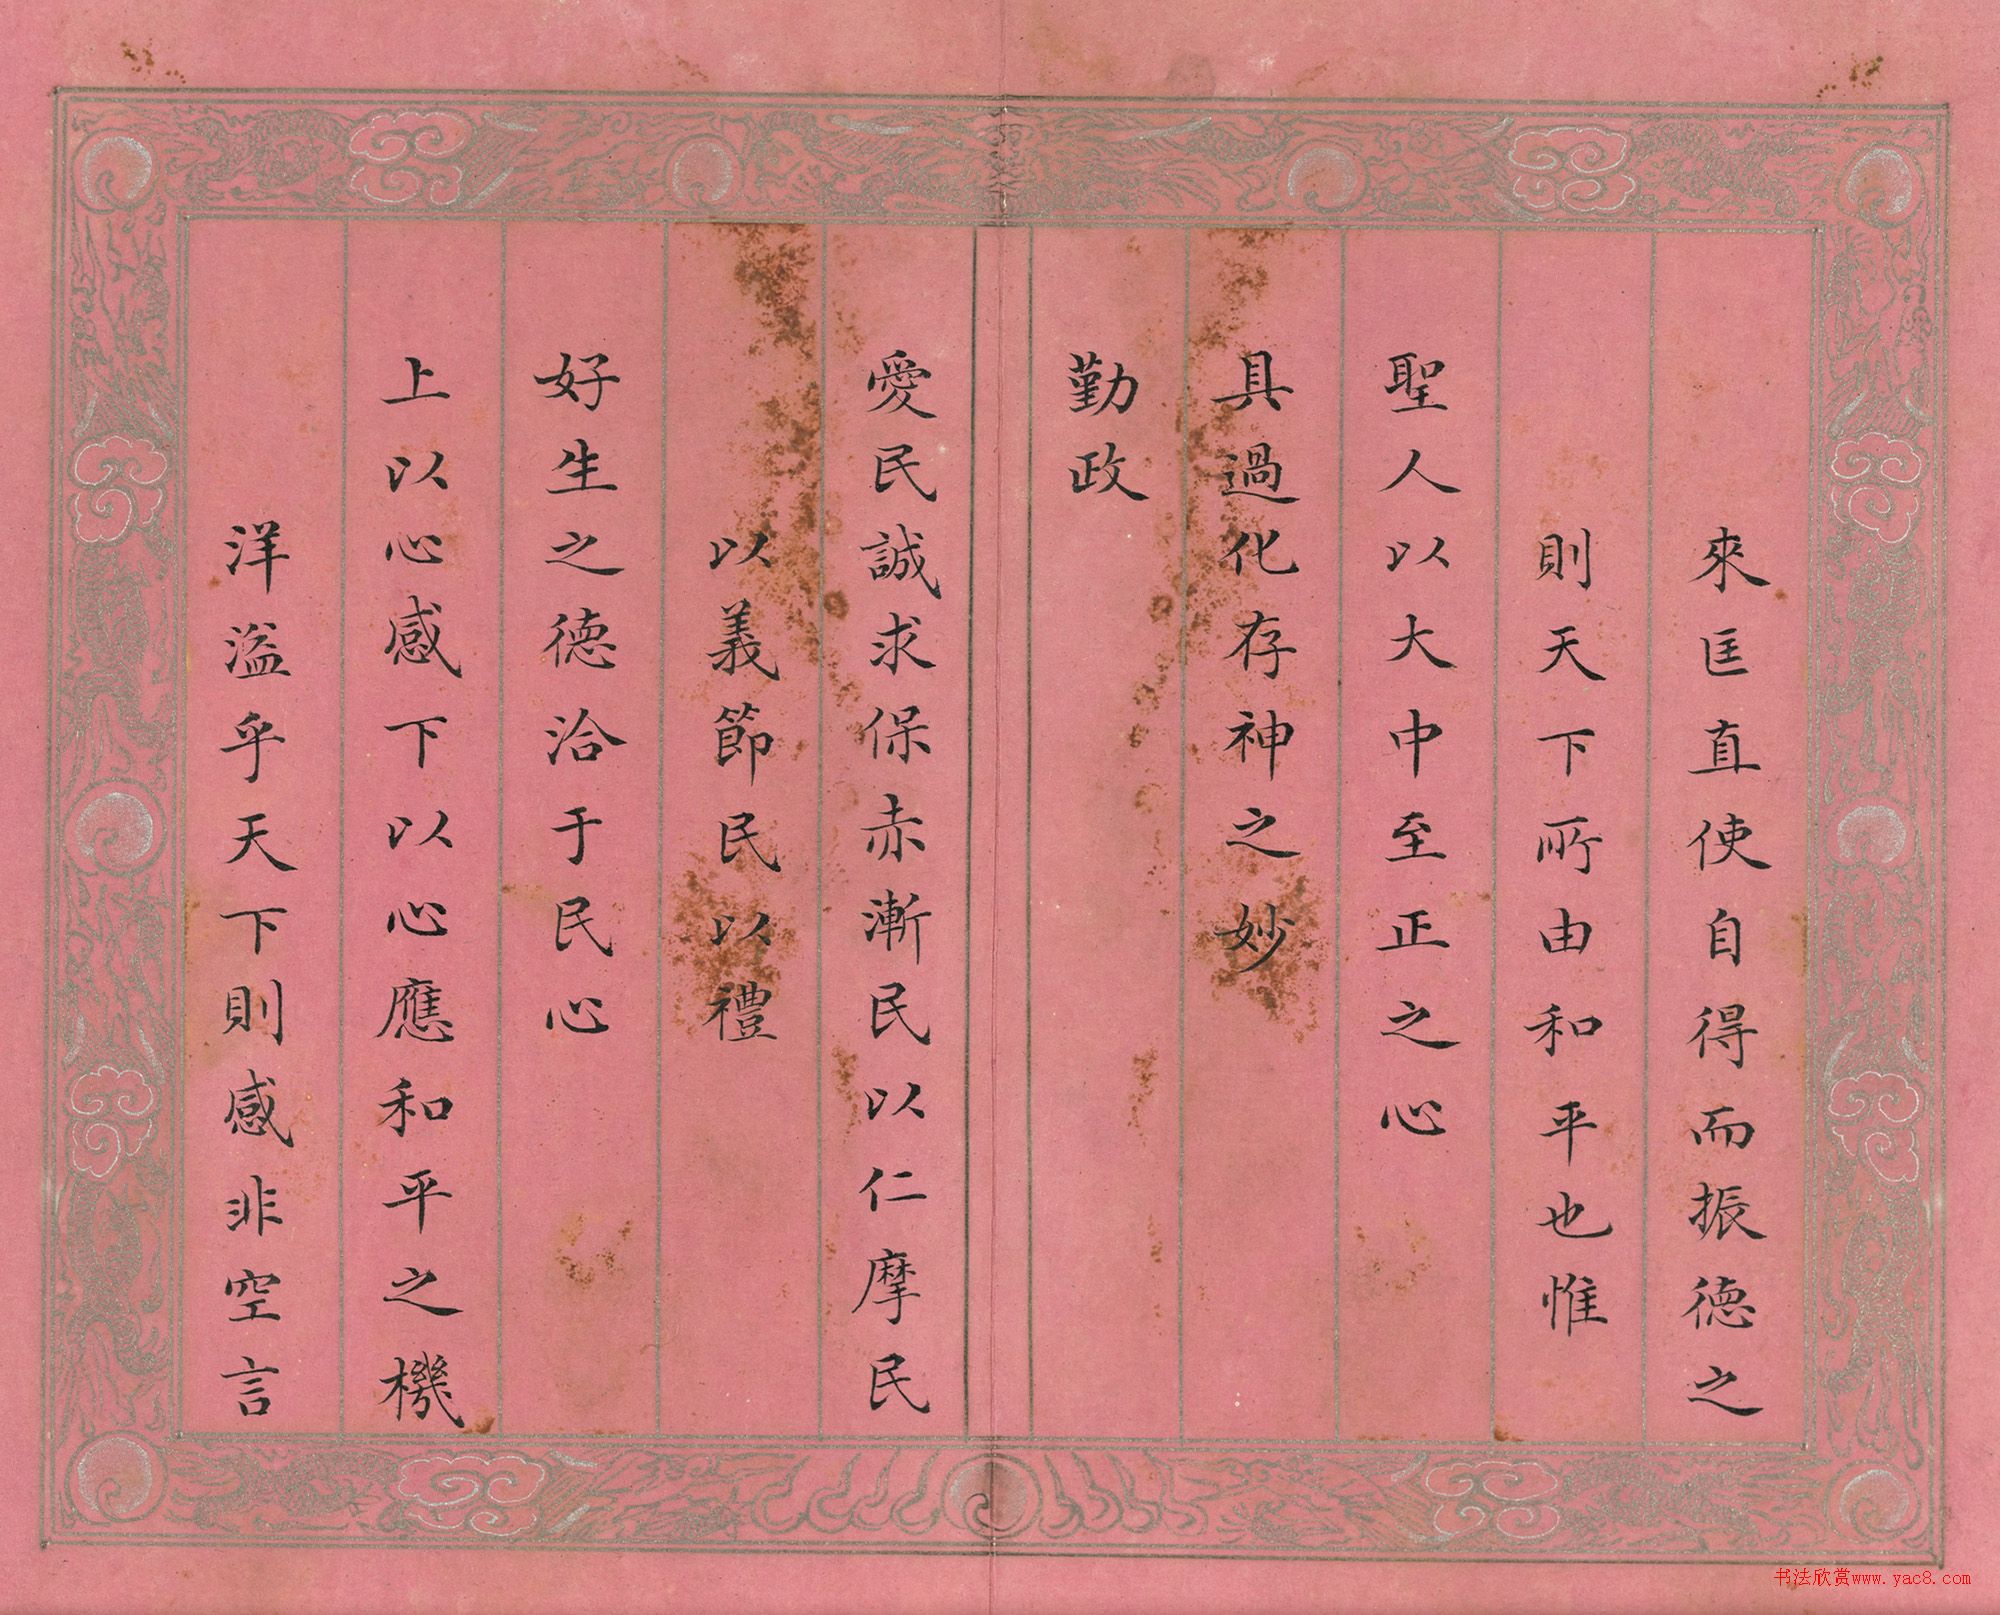 來匡直使自得而振德之
則天下所由和平也惟
聖人以大中至正之心
具過化存神之妙
勤政
愛民誠求保赤漸民以仁摩民
以義節民以禮
好生之德洽于民心
上以心感下以心應和平之機
洋溢乎天下則感非空言
书法欣赏www.yac8.com